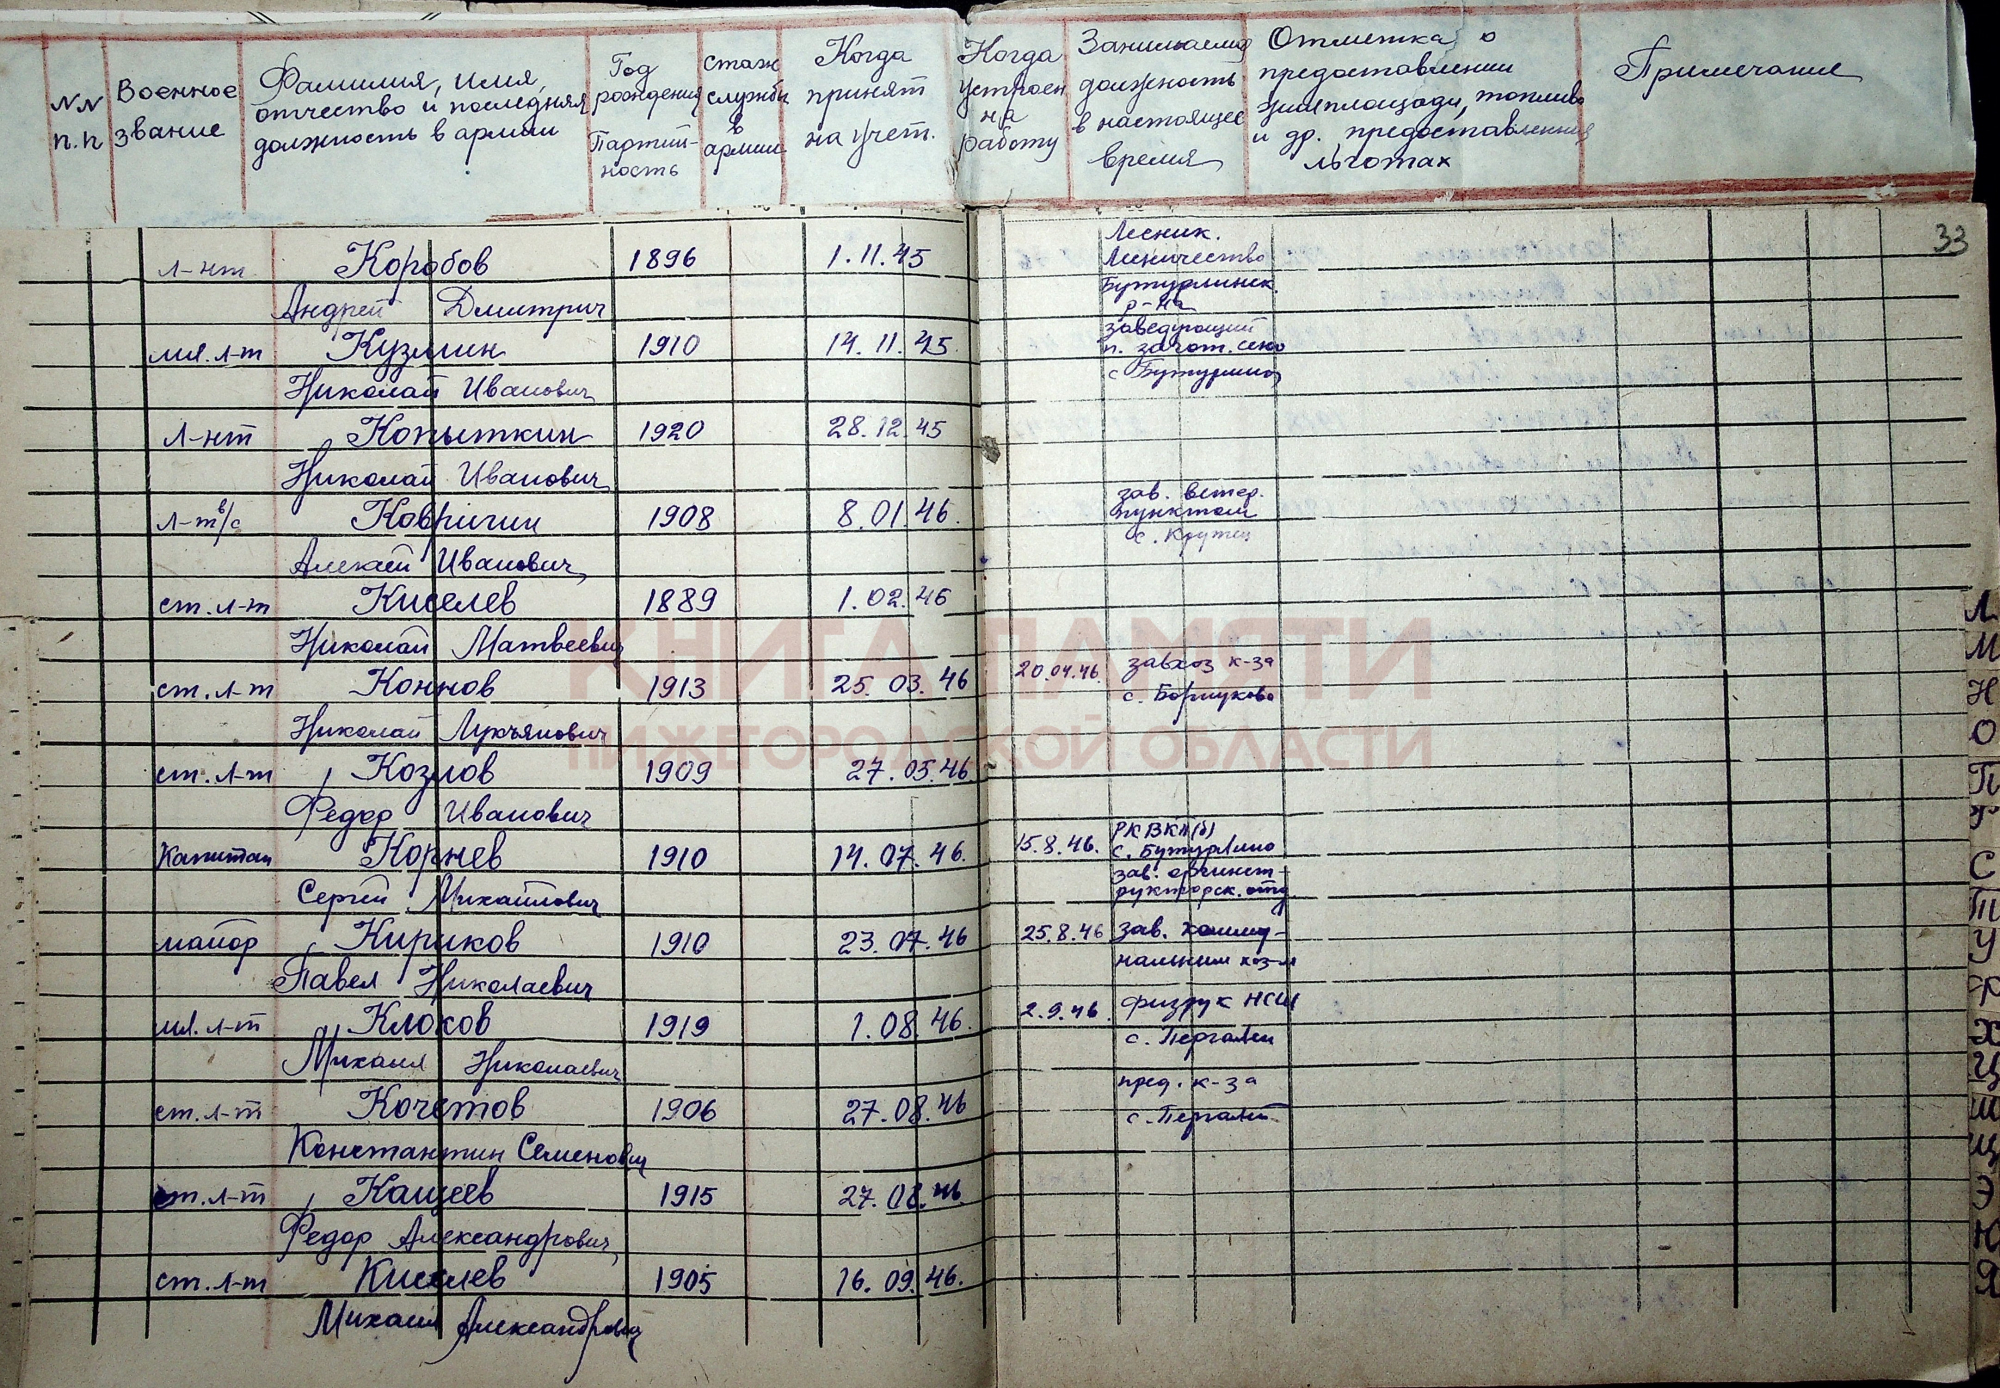 NN п.п
Военное звание
Фамилия, имя, отчество и последняя должность в армии
Год рождения Партийность
стаж службы в армии
Когда принят на учет.
Когда устроен на работу
Занимаемая должность в настоящее время
Отметка о предоставлении жилплощади, топлива и др. предоставленных льготах
Примечание
33
л-нт Коробов 1896 1.11.45 Лесник. Лесничество
Андрей Дмитрич Бутурлинск. р-на
мл. л-т Кузмин 1910 14.11.45 заведующий п. загот. сено
Николай Иванович с Бутурлино
л-нт Копыткин 1920 28.12.45
Николай Иванович
л-т в/с Ковригин 1908 8.01.46. зав. ветер. пунктом
Алексей Иванович с. Крутец
ст. л-т Киселев 1889 1.02.46
Николай Матвеевич
ст. л-т Коннов 1913 25.03.46 20.04.46. завхоз к-за
Николай Лукъянович с. Борнуково
ст. л-т Козлов 1909 27.05.46.
Федор Иванович
Капитан Корнев 1910 14.07.46. 15.8.46. РК ВКП(б) с. Бутурлино
Сергей Михайлович зав. оргинструкторск. отд
майор Кириков 1910 23.07.46 25.8.46 зав. комму-
Павел Николаевич нальним хоз-м
мл. л-т Клоков 1919 1.08.46. 2.9.46. физрук НСШ
Михаил Николаевич с. Пергалеи
ст. л-т Кочетов 1906 27.08.46 пред. к-за
Константин Семенович с. Пергалеи
ст. л-т Кащеев 1915 27.08.46.
Федор Александрович
ст. л-т Киселев 1905 16.09.46.
Михаил Александрович
КНИГА ПАМЯТИ
НИЖЕГОРОДСКОЙ ОБЛАСТИ
Л
М
Н
О
П
Р
С
Т
У
Ф
Х
Ц
Ш
Щ
Э
Ю
Я